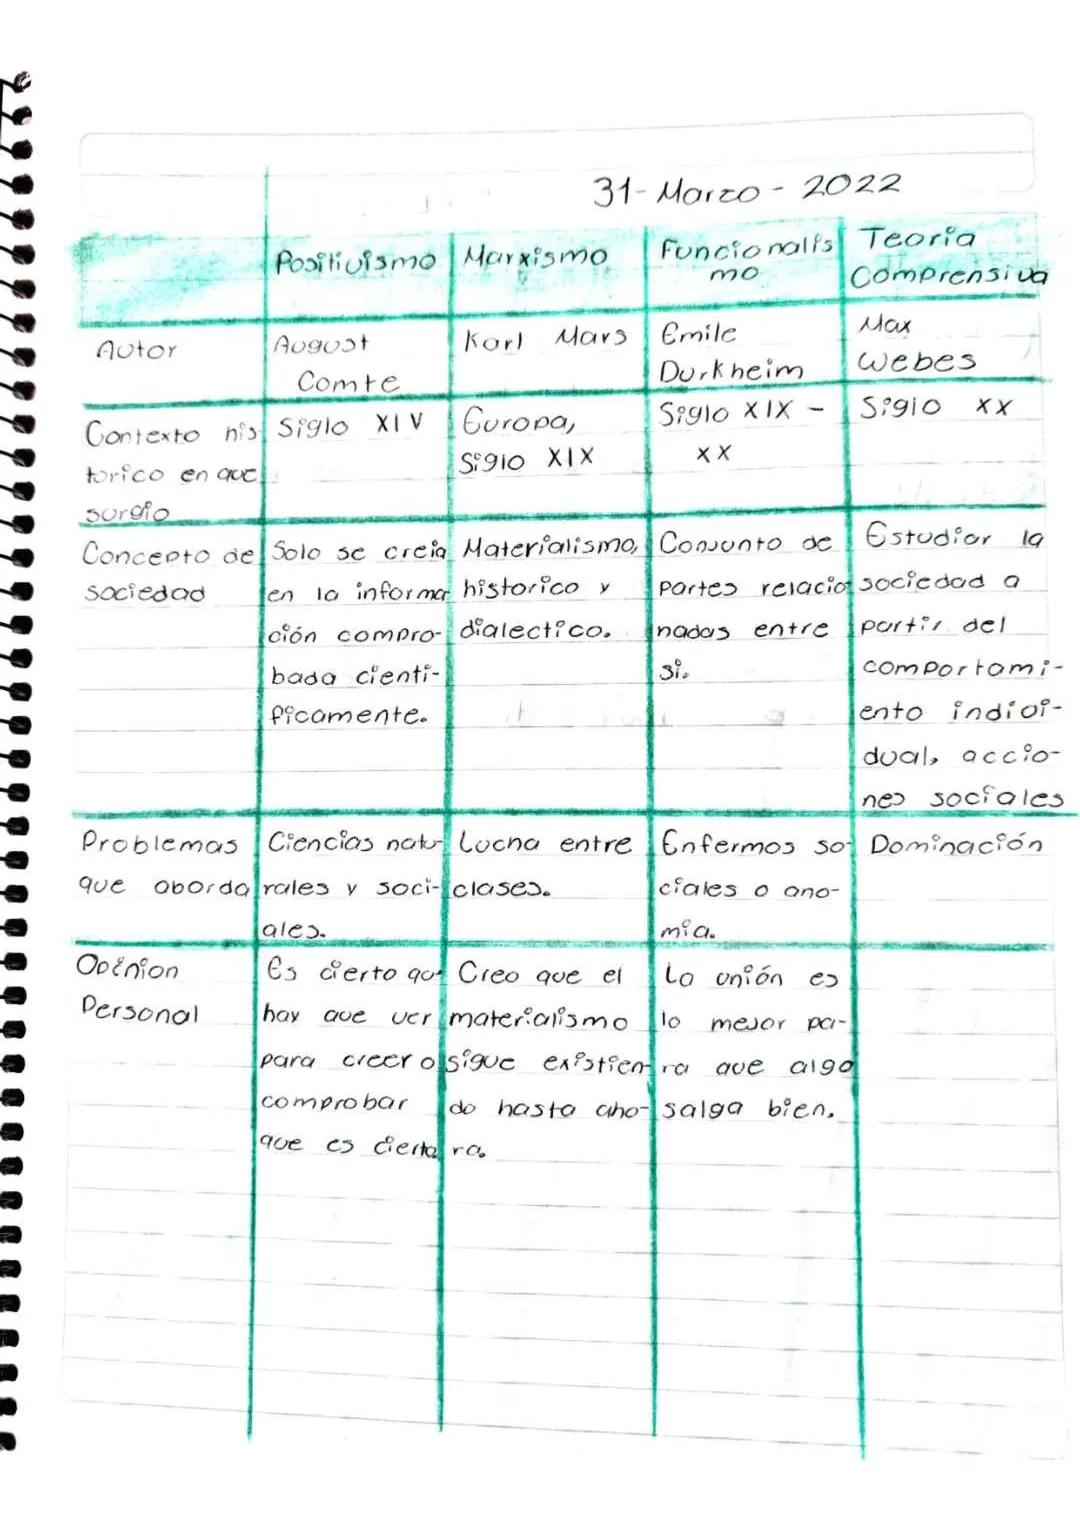 31-Marzo-2022
Positivismo
Marxismo
Funcionalis
mo
Teoría
Comprensiva
Autor
August
Comte
Karl Mars
Emile
Durkheim
Max
Webes
Contexto his
torico en que
surgio
Siglo XIV
Europa,
Siglo XIX
Siglo XIX -
XX
Siglo XX
Concepto de
sociedad
Solo se creia
en la informa
ción compro-
bada cienti-
ficamente.
Materialismo,
historico y
dialectico.
Conjunto de
partes relacio
nadas entre
si.
Estudiar la
sociedad a
partir del
comportami-
ento indivi-
dual, accio-
nes sociales
Problemas
que aborda
Ciencias natu
rales y soci-
ales.
Lucha entre
clases.
Enfermos so-
ciales o ano-
mia.
Dominación
Opinion
Personal
Es cierto que
hay que ver
para creer o
comprobar
que es cierta
Creo que el
materialismo
sigue existien-
do hasta aho-
ra.
La unión es
lo mejor pa-
ra que algo
salga bien.